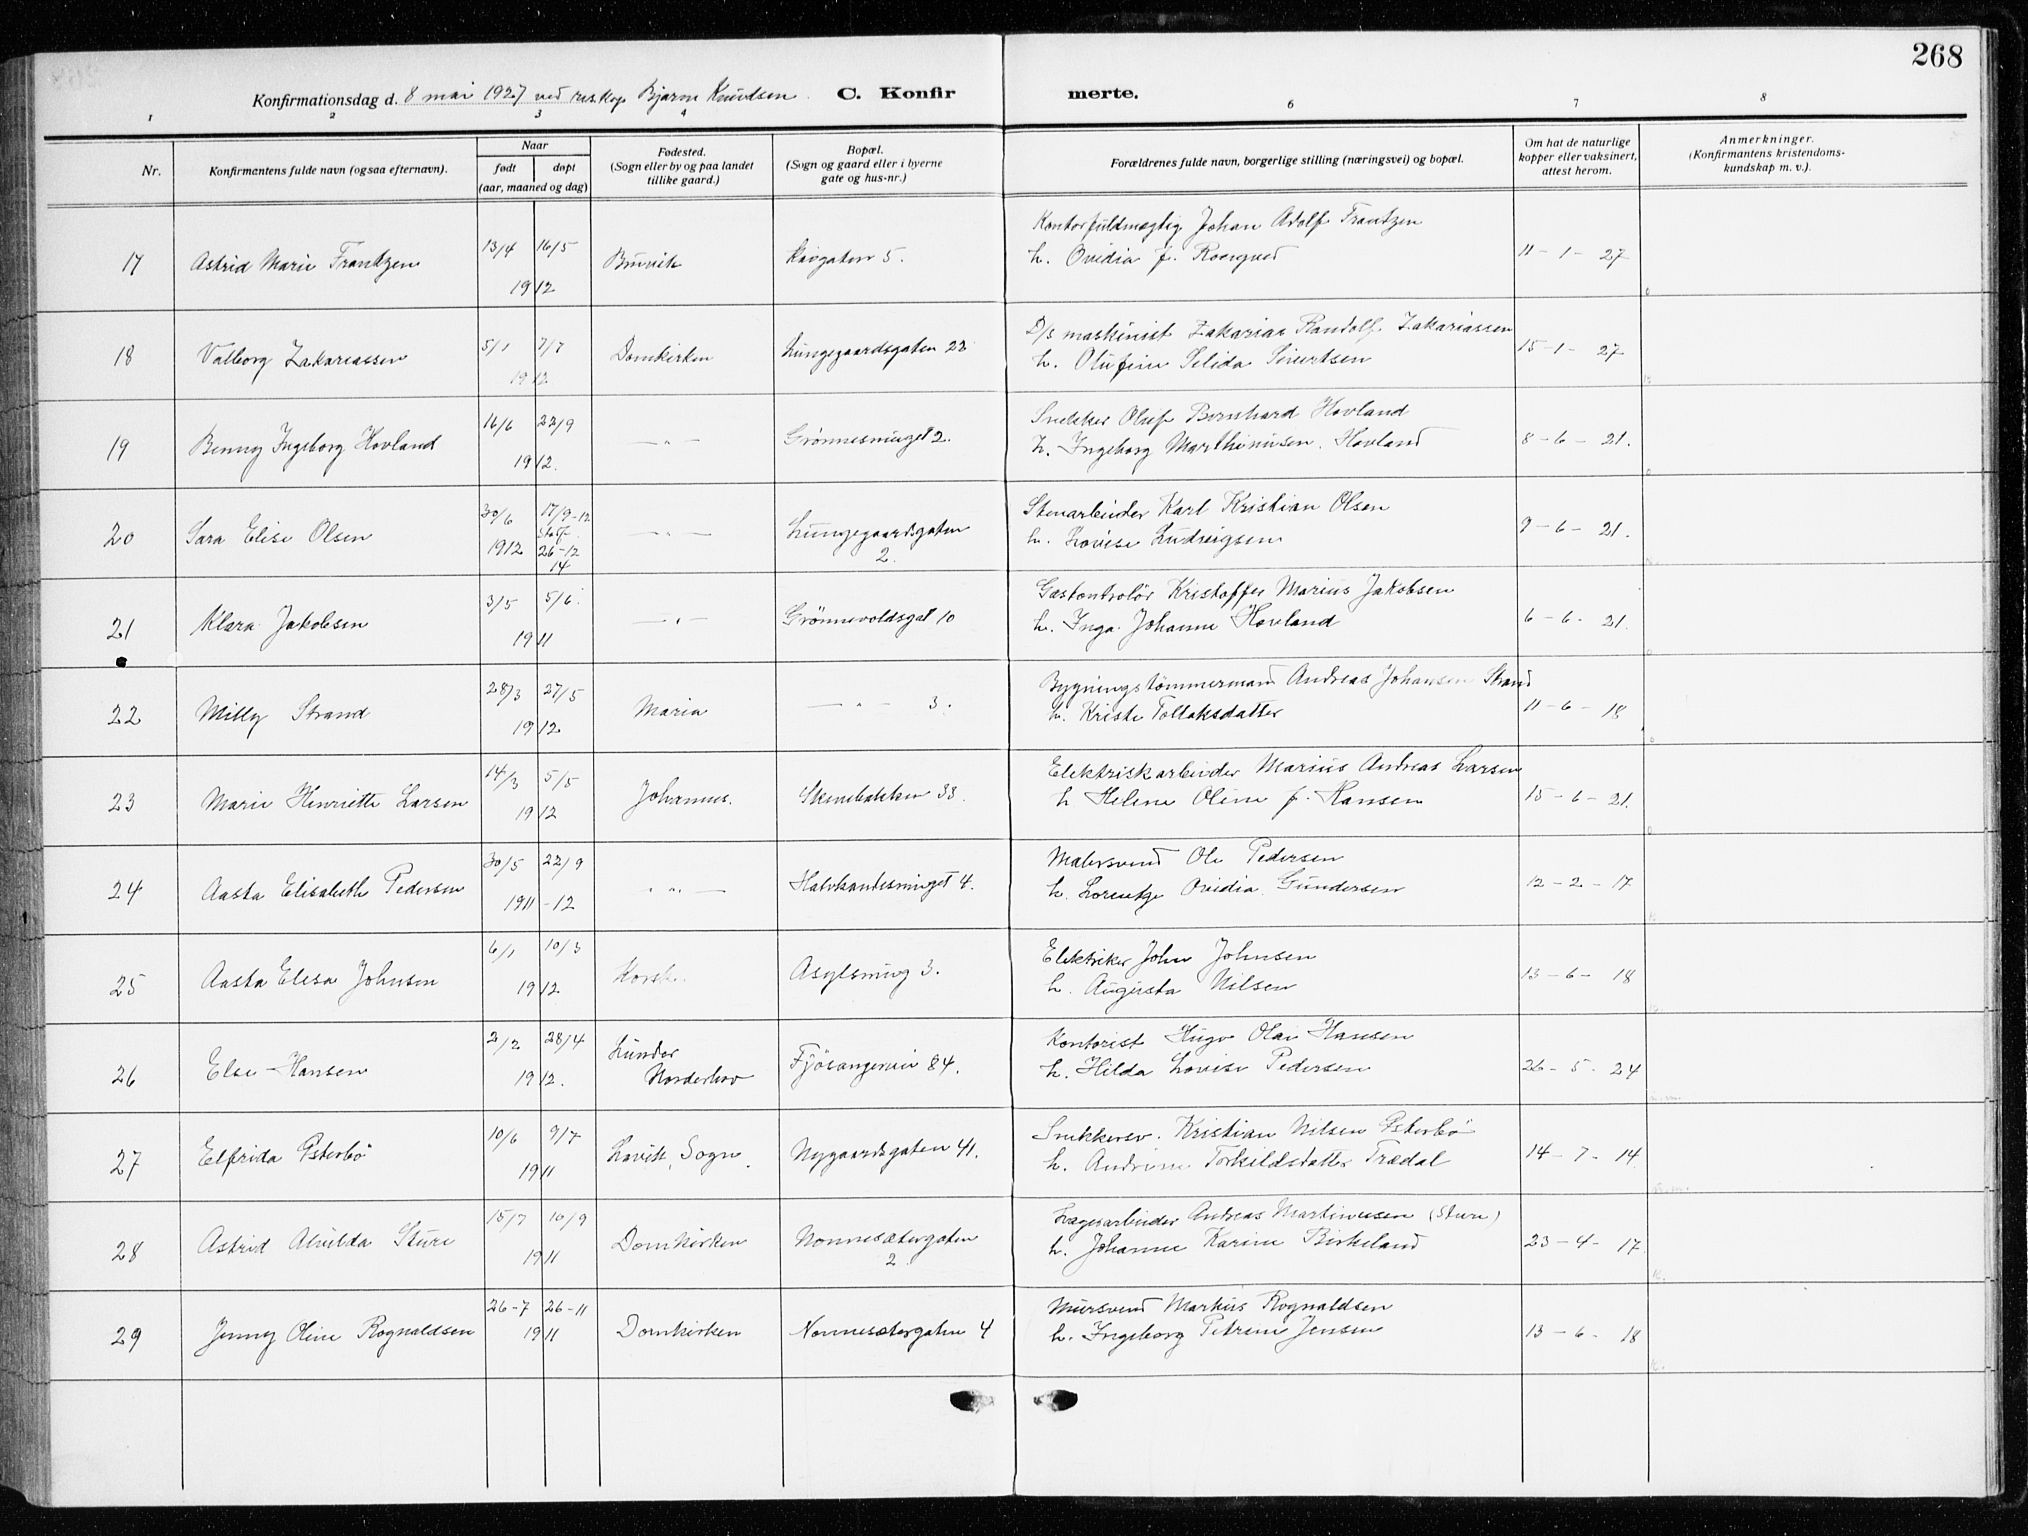 268
Konfirmationsdag d. 8 mai 1927 ved res.kap. Bjarne Knudtsen C. Konfir merte.
1 2 3 4 6 7 8
Nr.
Konfirmantens fulde navn (ogsaa efternavn).
Naar
født døpt
(aar, maaned og dag)
Fødested.
(Sogn eller by og paa landet
tillike gaard.)
Bopæl.
(Sogn og gaard eller i byerne
gate og hus-nr.)
Forældrenes fulde navn, borgerlige stilling (næringsvei) og bopæl.
Om hat de naturlige
kopper eller vaksinert,
attest herom.
Anmerkninger.
(Konfirmantens kristendoms-
kundskap m. v.).
13/4 16/5 Kontorfuldmægtig Johan Adolf Frantzen
17 Astrid Marie Frantzen Bruvik 5. h. Ovidia f. 11-1-27
1912
5/1 7/7 D/s maskinist Zakarias Randolf Zakariassen
18 Valborg Zakariassen Domkirken Lungegaardsgaten 22 h. Olufine Selida Sivertsen 15-1-27
1912
16/6 22/9 Snekker Oluf Bernhard Hovland
19 Benny Ingeborg Hovland —„— Grønnesmuget 2. h. Ingeborg Marthinusen Hovland 8-6-21.
1912.
30/6 17/9-12 Stenarbeider Karl Kristian Olsen
20 Sara Elise Olsen stadf. —„— Lungegaardsgaten h. Lovise Ludvigsen 9-6-21.
1912 26-12 2.
14
3/5 5/6. Gaskontrolør Kristoffer Marius Jakobsen
21 Klara Jakobsen —„— Grønnevoldsgat 10 h. Inga Johanne Hovland 6-6-21.
1911
28/3 27/5 Bygningstømmermand Andreas Johansen Strand
22 Milly Strand Maria —„— 3. h. Kristi Tollaksdatter 11-6-18
1912
14/3 5/5 Elektriskarbeider Marius Andreas Larsen
23 Marie Henriette Larsen Johannes. Skivebakken 33. h Helene Oline f. Hansen 15-6-21.
1912
30/5 22/9 Malersvend Ole Pedersen
24 Aasta Elisabeth Pedersen —„— Halvkandesmuget 4. h. Lorentze Ovidia Gundersen 12-2-17
1911-12
6/1 10/3 Elektriker John Johnsen
25 Aasta Elisa Johnsen Korsk. Asylsmug 3. h. Augusta Nilsen 13-6-18
1912
2/2 28/4 Kontorist Hugo Olai Hansen
26 Else Hansen Lunder Norderhov Fjøsangervei 84. h. Hilda Lovise Pedersen 26-5-24
1912.
10/6 9/7 Snekkersv. Kristian Nilsen Østerbø
27 Elfrida Østerbø Lavik, Sogn. Nygaardsgaten 41. h. Andrine Torkildsdatter Trædal 14-7-14
1911
15/7 10/9 Lagerarbeider Andreas Martinussen (Sture)
28 Astrid Alvilda Sture Domkirken Nonnesætergaten 2. h. Johanne Karine Birkeland 23-4-17.
1911
26-7 26-11 Mursvend Markus Rognaldsen
29 Jenny Oline Rognaldsen Domkirken Nonnesætergaten 4 h. Ingeborg Petrine Jensen 13-6-18
1911